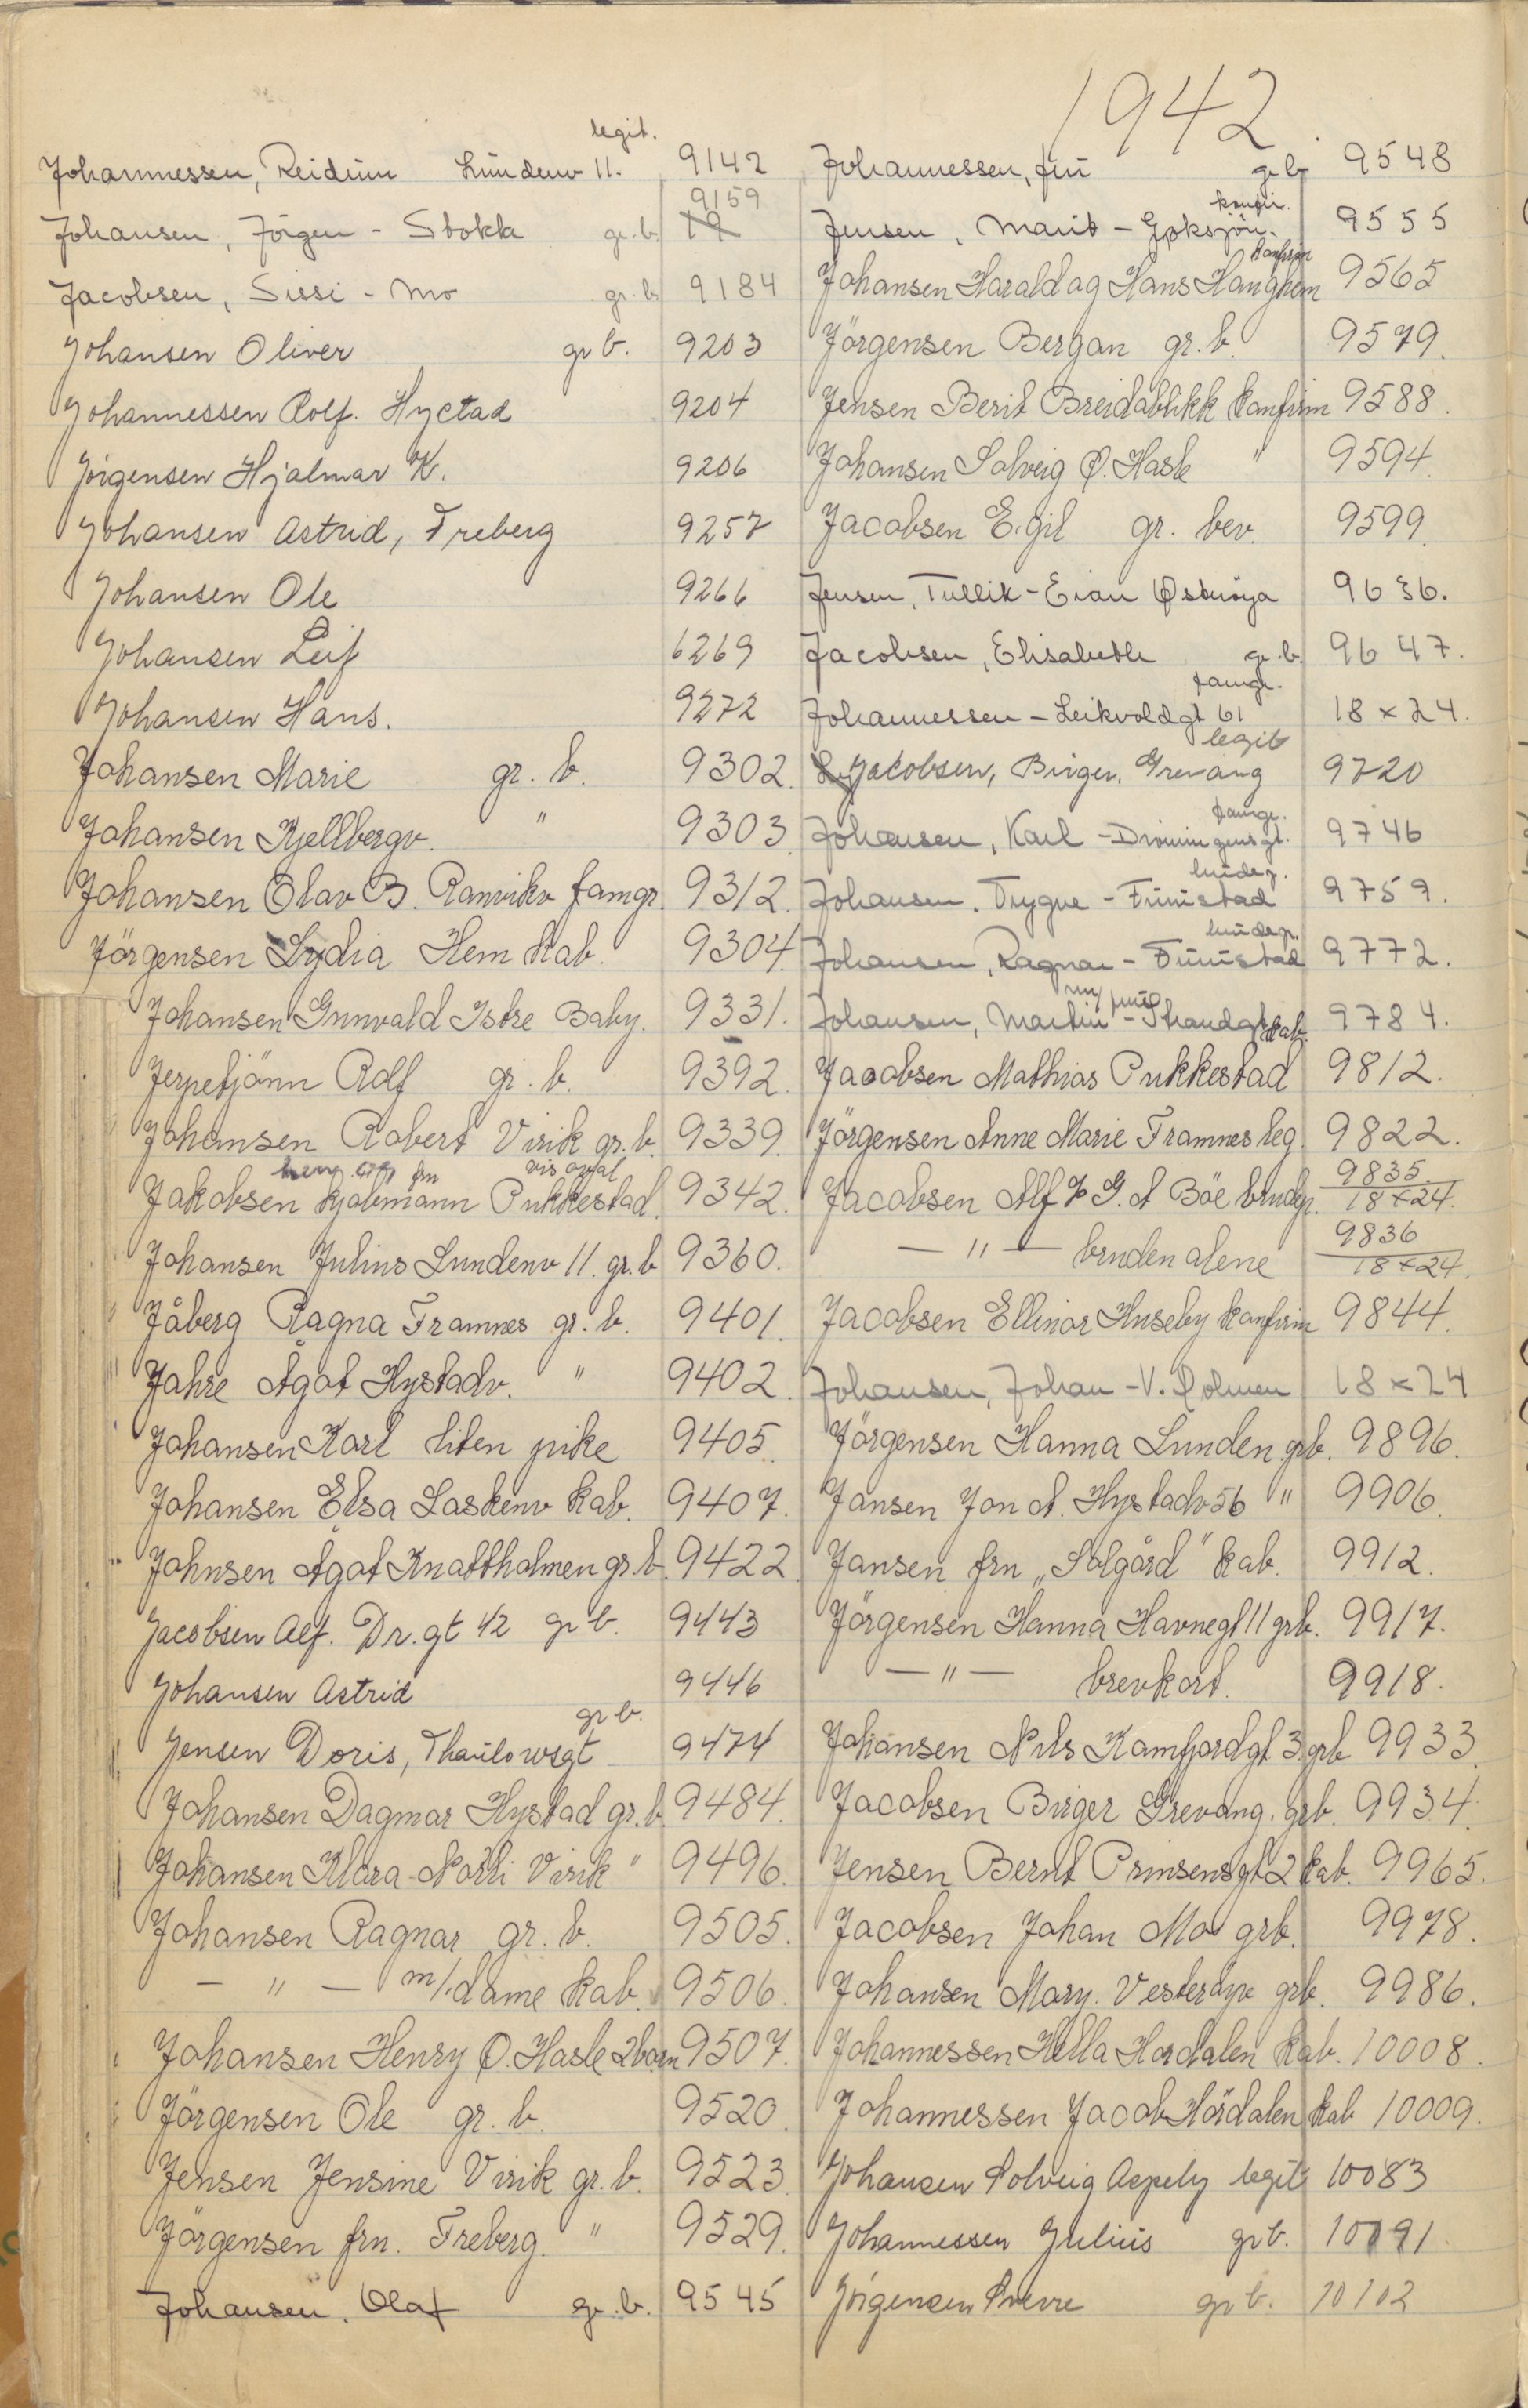 1942
Johannessen, Reidun Lundenv 11. legit. 9142
Johansen, Jörgen - Stokke gr. b. 9159
Jacobsen, Sissi - Mo gr. b. 9184
Johansen Oliver gr b. 9203
Johannessen Rolf. Hyctad 9204
Jörgensen Hjalmar K. 9206
Johansen Astrid, Freberg 9257
Johansen Ole 9266
Johansen Leif 6269
Johansen Hans. 9272
Johansen Marie gr. b. 9302.
Johansen Kjellbergv. " 9303
Johansen Olav B. Ranvikv famgr. 9312.
Jörgensen Lydia Hem kab. 9304.
Johansen Gunvald Istre Baby. 9331.
Jerpetjönn Rolf gr. b. 9392.
Johansen Robert Virik gr. b. 9339.
Jakobsen Hjalmann Pukkestad. vis oval 9342.
Johansen Julius Lundenv 11. gr. b 9360.
Jåberg Ragna Framnes gr. b. 9401.
Jahre Ågot Hystadv. " 9402.
Johansen Karl liten pike 9405.
Johansen Elsa Laskenv kab. 9407.
Johnsen Ågot Knattholmen gr. b. 9422
Jacobsen Alf. Dr. gt 42 gr b. 9443
Johansen Astrid 9446
Jensen Doris, Thaulowsgt gr b. 9474
Johansen Dagmar Hystad gr. b. 9484.
Johansen Klara-Norli Virik " 9496.
Johansen Ragnar gr. b. 9505.
— " — m/. dame kab. 9506.
Johansen Henry Ø. Hasle 2 barn 9507.
Jörgensen Ole gr. b. 9520
Jensen Jensine Virik gr. b. 9523
Jörgensen fru. Freberg. " 9529.
Johansen, Olaf gr. b. 9545
Johannessen, fru gr b 9548
Jensen, Marit - Goksjön. konfir. 9555
Johansen Harald og Hans Haughem konfirm 9565
Jörgensen Bergan gr. b. 9579.
Jensen Berit Breidablikk konfirm 9588.
Johansen Solveig Ø. Hasle " 9594.
Jacobsen Egil gr. bev. 9599.
Jensen, Tullik - Eian Østeröya 9636.
Jacobsen, Elisabeth gr. b. 9647.
Johannessen - Leikvoldgt 61 famgr. 18 x 24.
Jacobsen, Birger, Grevang legit 9720
Johansen, Karl - Dronningensgt. famgr. 9746
Johansen. Trygve - Furustad brudep. 9759.
Johansen, Ragnar - Furustad brudep. 9772.
Johansen, Martin - Strandgt kab. m/ frue 9784.
Jacobsen Mathias Pukkestad 9812.
Jörgensen Anne Marie Framnes leg. 9822.
Jacobsen Alf % G. A Böe brudp. 9835 18 x 24.
— " — bruden alene 9836 18 x 24.
Jacobsen Ellinor Huseby konfirm 9844.
Johansen, Johan - V. Holmen 18 x 24
Jörgensen Hanna Lunden grb. 9896.
Jansen Jon A. Hystadv 56 " 9906.
Jansen fru „Solgård" kab. 9912.
Jörgensen Hanna Havnegt 11 grb. 9917.
— " — brevkort. 9918.
Johansen Nils Kamfjordgt. 3. grb 9933.
Jacobsen Birger Grevang. grb. 9934.
Jensen Bernt Prinsensgt 2 kab. 9965.
Jacobsen Johan Mo grb. 9978.
Johansen Mary. Vesteröyv grb. 9986.
Johannessen Hella Hørdalen kab. 10008.
Johannessen Jacob Hördalen kab 10009.
Johansen Solveig Aspely legit 10083
Johannessen Julius gr b. 10091
Jörgensen Sverre gr b. 10102